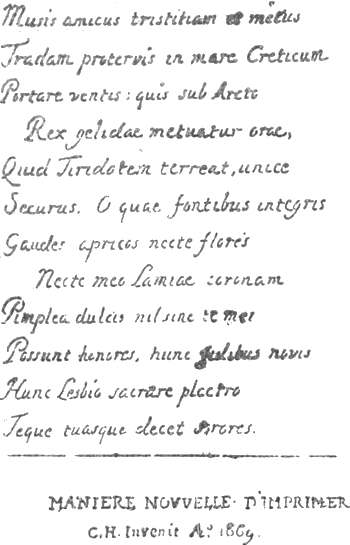 Musis amicus tristitiam et metus
Tradam protervis in mare Creticum
Portare ventis: quis sub Arcto
Rex gelidae metuatur orae,
Quid Tiridatem terreat, unice
Securus. O quae fontibus integris
Gaudes apricos necte flores
Necte meo Lamiae coronam
Pimplea dulcis nil sine te mei
Possunt honores, hunc fidibus novis
Hunc Lesbio sacrare plectro
Teque tuasque decet sorores.
MANIERE NOVVELLE· D'IMPRIMER
C.H. Invenit Aº. 1669.